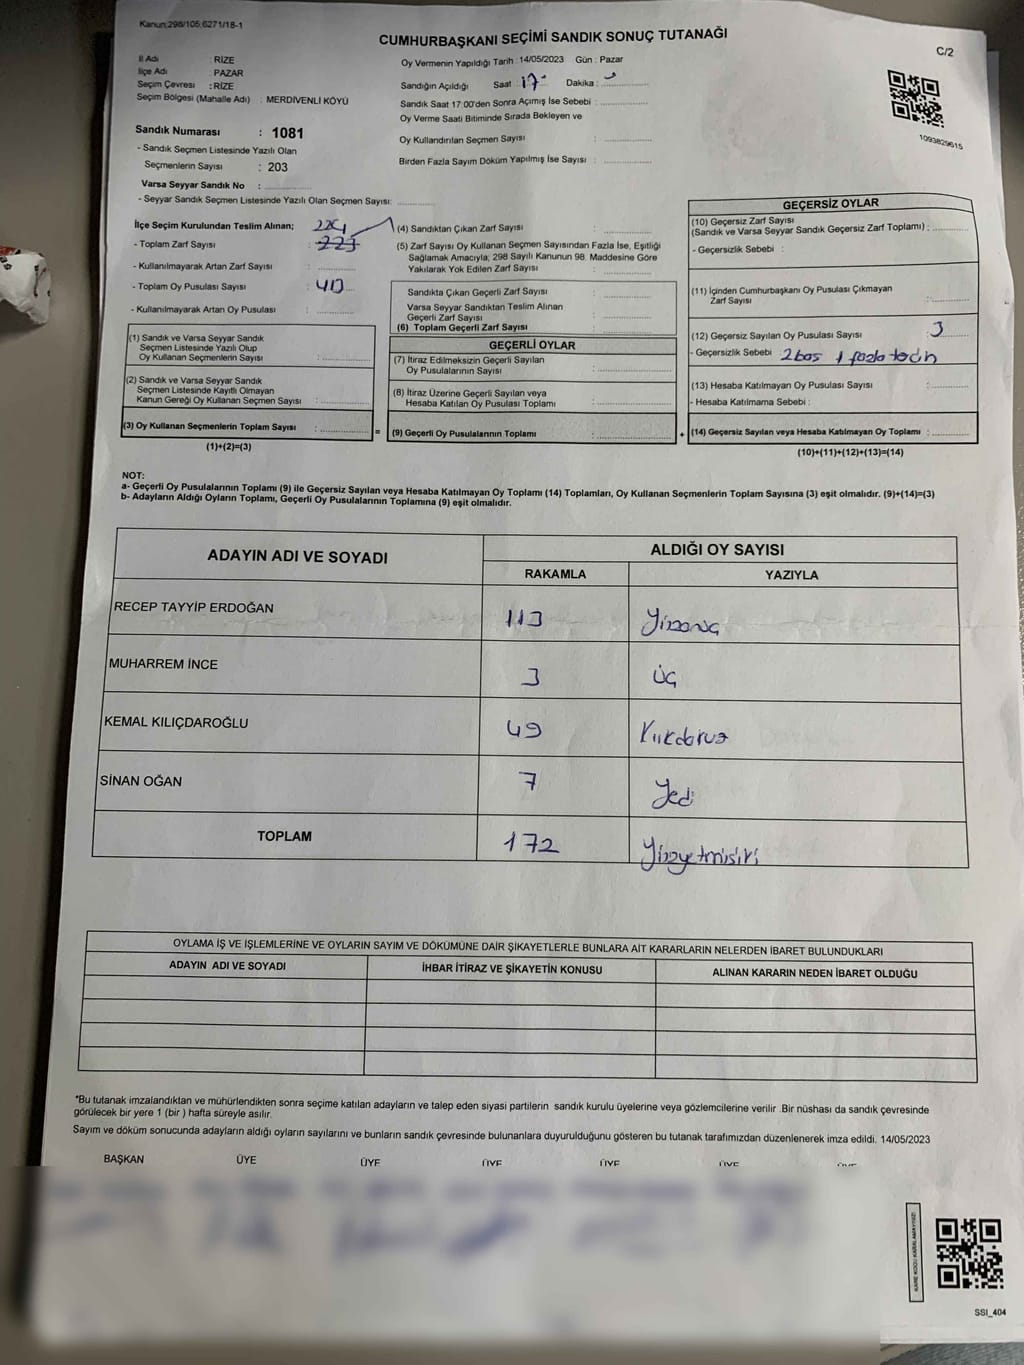 Kanun:298/105,6271/18-1
CUMHURBAŞKANI SEÇİMİ SANDIK SONUÇ TUTANAĞI
C/2
İl Adı : RİZE
İlçe Adı : PAZAR
Seçim Çevresi : RİZE
Seçim Bölgesi (Mahalle Adı) : MERDİVENLİ KÖYÜ
Sandık Numarası : 1081
- Sandık Seçmen Listesinde Yazılı Olan
Seçmenlerin Sayısı : 203
Varsa Seyyar Sandık No :
- Seyyar Sandık Seçmen Listesinde Yazılı Olan Seçmen Sayısı:
Oy Vermenin Yapıldığı Tarih : 14/05/2023 Gün : Pazar
Sandığın Açıldığı Saat : 17 Dakika :
Sandık Saat 17:00'den Sonra Açımış İse Sebebi :
Oy Verme Saati Bitiminde Sırada Bekleyen ve
Oy Kullandırılan Seçmen Sayısı :
Birden Fazla Sayım Döküm Yapılmış İse Sayısı :
1093829615
İlçe Seçim Kurulundan Teslim Alınan;
- Toplam Zarf Sayısı : 223
- Kullanılmayarak Artan Zarf Sayısı :
- Toplam Oy Pusulası Sayısı :
- Kullanılmayarak Artan Oy Pusulası :
(1) Sandık ve Varsa Seyyar Sandık
Seçmen Listesinde Yazılı Olup
Oy Kullanan Seçmenlerin Sayısı :
(2) Sandık ve Varsa Seyyar Sandık
Seçmen Listesinde Kayıtlı Olmayan
Kanun Gereği Oy Kullanan Seçmen Sayısı :
(3) Oy Kullanan Seçmenlerin Toplam Sayısı : =
(1)+(2)=(3)
(4) Sandıktan Çıkan Zarf Sayısı :
(5) Zarf Sayısı Oy Kullanan Seçmen Sayısından Fazla İse, Eşitliği
Sağlamak Amacıyla; 298 Sayılı Kanunun 98. Maddesine Göre
Yakılarak Yok Edilen Zarf Sayısı :
Sandıkta Çıkan Geçerli Zarf Sayısı :
Varsa Seyyar Sandıktan Teslim Alınan
Geçerli Zarf Sayısı :
(6) Toplam Geçerli Zarf Sayısı :
GEÇERLİ OYLAR
(7) İtiraz Edilmeksizin Geçerli Sayılan
Oy Pusulalarının Sayısı :
(8) İtiraz Üzerine Geçerli Sayılan veya
Hesaba Katılan Oy Pusulası Toplamı :
(9) Geçerli Oy Pusulalarının Toplamı : +
GEÇERSİZ OYLAR
(10) Geçersiz Zarf Sayısı
(Sandık ve Varsa Seyyar Sandık Geçersiz Zarf Toplamı) :
- Geçersizlik Sebebi :
(11) İçinden Cumhurbaşkanı Oy Pusulası Çıkmayan
Zarf Sayısı :
(12) Geçersiz Sayılan Oy Pusulası Sayısı : 3
- Geçersizlik Sebebi : 2 boş 1 fazla tercih
(13) Hesaba Katılmayan Oy Pusulası Sayısı :
- Hesaba Katılmama Sebebi :
(14) Geçersiz Sayılan veya Hesaba Katılmayan Oy Toplamı :
(10)+(11)+(12)+(13)=(14)
NOT:
a- Geçerli Oy Pusulalarının Toplamı (9) ile Geçersiz Sayılan veya Hesaba Katılmayan Oy Toplamı (14) Toplamları, Oy Kullanan Seçmenlerin Toplam Sayısına (3) eşit olmalıdır. (9)+(14)=(3)
b- Adayların Aldığı Oyların Toplamı, Geçerli Oy Pusulalarının Toplamına (9) eşit olmalıdır.
ADAYIN ADI VE SOYADI
ALDIĞI OY SAYISI
RAKAMLA YAZIYLA
RECEP TAYYİP ERDOĞAN 113 Yüzonüç
MUHARREM İNCE 3 üç
KEMAL KILIÇDAROĞLU 49 Kırkdokuz
SİNAN OĞAN 7 Yedi
TOPLAM 172 Yüzyetmişiki
OYLAMA İŞ VE İŞLEMLERİNE VE OYLARIN SAYIM VE DÖKÜMÜNE DAİR ŞİKAYETLERLE BUNLARA AİT KARARLARIN NELERDEN İBARET BULUNDUKLARI
ADAYIN ADI VE SOYADI
İHBAR İTİRAZ VE ŞİKAYETİN KONUSU
ALINAN KARARIN NEDEN İBARET OLDUĞU
*Bu tutanak imzalandıktan ve mühürlendikten sonra seçime katılan adayların ve talep eden siyasi partilerin sandık kurulu üyelerine veya gözlemcilerine verilir .Bir nüshası da sandık çevresinde
görülecek bir yere 1 (bir ) hafta süreyle asılır.
Sayım ve döküm sonucunda adayların aldığı oyların sayılarını ve bunların sandık çevresinde bulunanlara duyurulduğunu gösteren bu tutanak tarafımızdan düzenlenerek imza edildi. 14/05/2023
BAŞKAN ÜYE ÜYE ÜYE ÜYE ÜYE ÜYE
KARE KODU KARALAMAYINIZ!
SSI_404